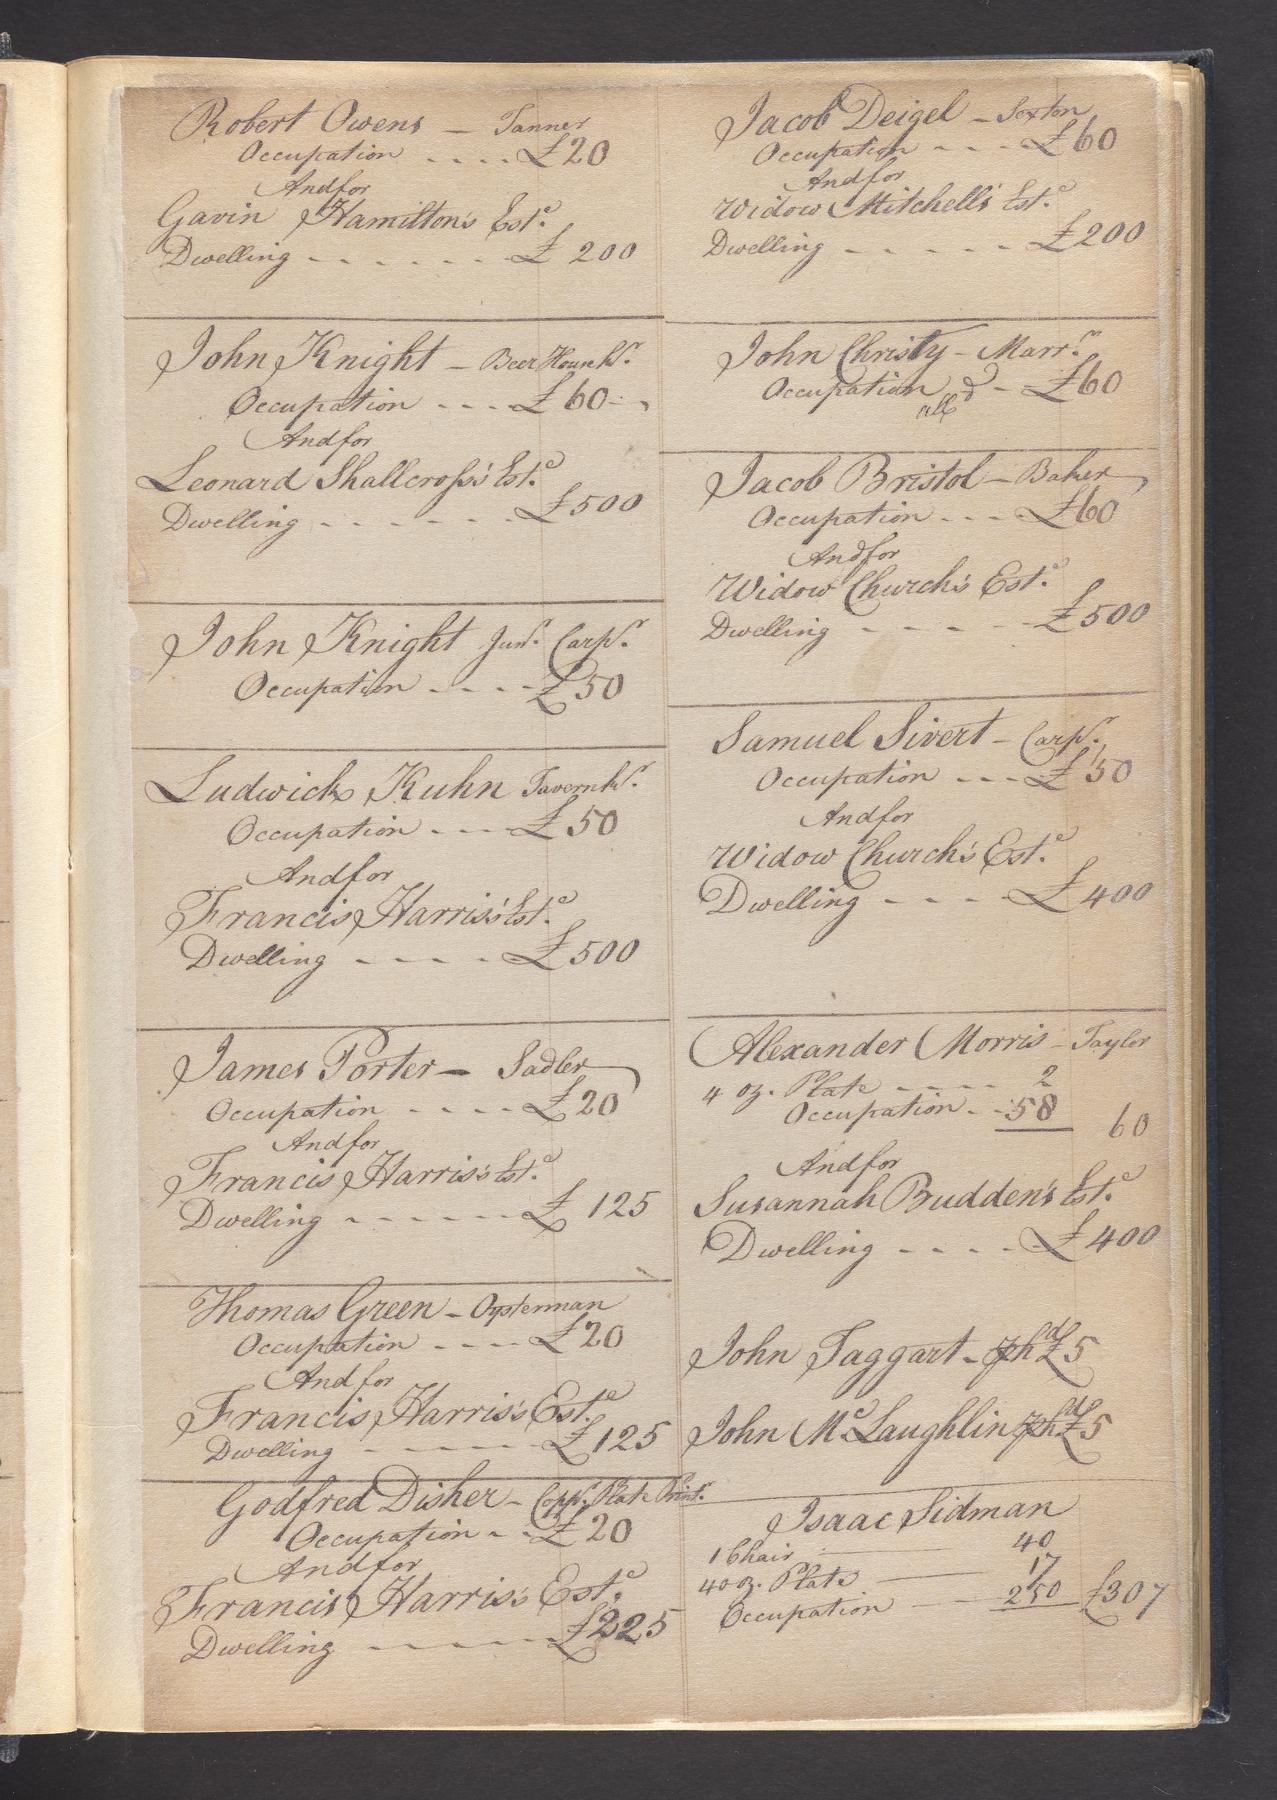 Robert Owens — Tanner
Occupation - - - - £20
And for
Gavin Hamilton's Est.e
Dwelling - - - - - - - £ 200
John Knight — Beer Housek.r
Occupation - - - £60
And for
Leonard Shallcross's Est.e
Dwelling - - - - - - £500
John Knight Jun.r Carp.r
Occupation - - - - £50
Ludwick Kuhn Tavernk.r
Occupation - - - £50
And for
Francis Harris's Est.e
Dwelling - - - - £500
James Porter — Sadler
Occupation - - - - £20
And for
Francis Harris's Est.e
Dwelling - - - - - - £ 125
Thomas Green — Oysterman
Occupation - - - - £20
And for
Francis Harris's Est.e
Dwelling - - - - - £125
Godfred Disher — Copp.r Plate Print.r
Occupation - - £20
And for
Francis Harris's Est.e
Dwelling - - - - - £225
Jacob Deigel — Sexton
Occupation - - - - £60
And for
Widow Mitchell's Est.e
Dwelling - - - - - £200
John Christy — Marr.r
Occupation - £60
Jacob Bristol — Baker
Occupation - - - £60
And for
Widow Church's Est.e
Dwelling - - - - - £500
Samuel Sivert — Carp.r
Occupation - - - £50
And for
Widow Church's Est.e
Dwelling - - - - £400
Alexander Morris — Taylor
4 oz. Plate - - - - - 2
Occupation - - 58 60
And for
Susannah Budden's Est.e
Dwelling - - - - £400
John Taggart — £5
John Mc.Laughlin £5
Isaac Sidman
1 Chair 40
40 oz. Plate 17
Occupation 250 £307